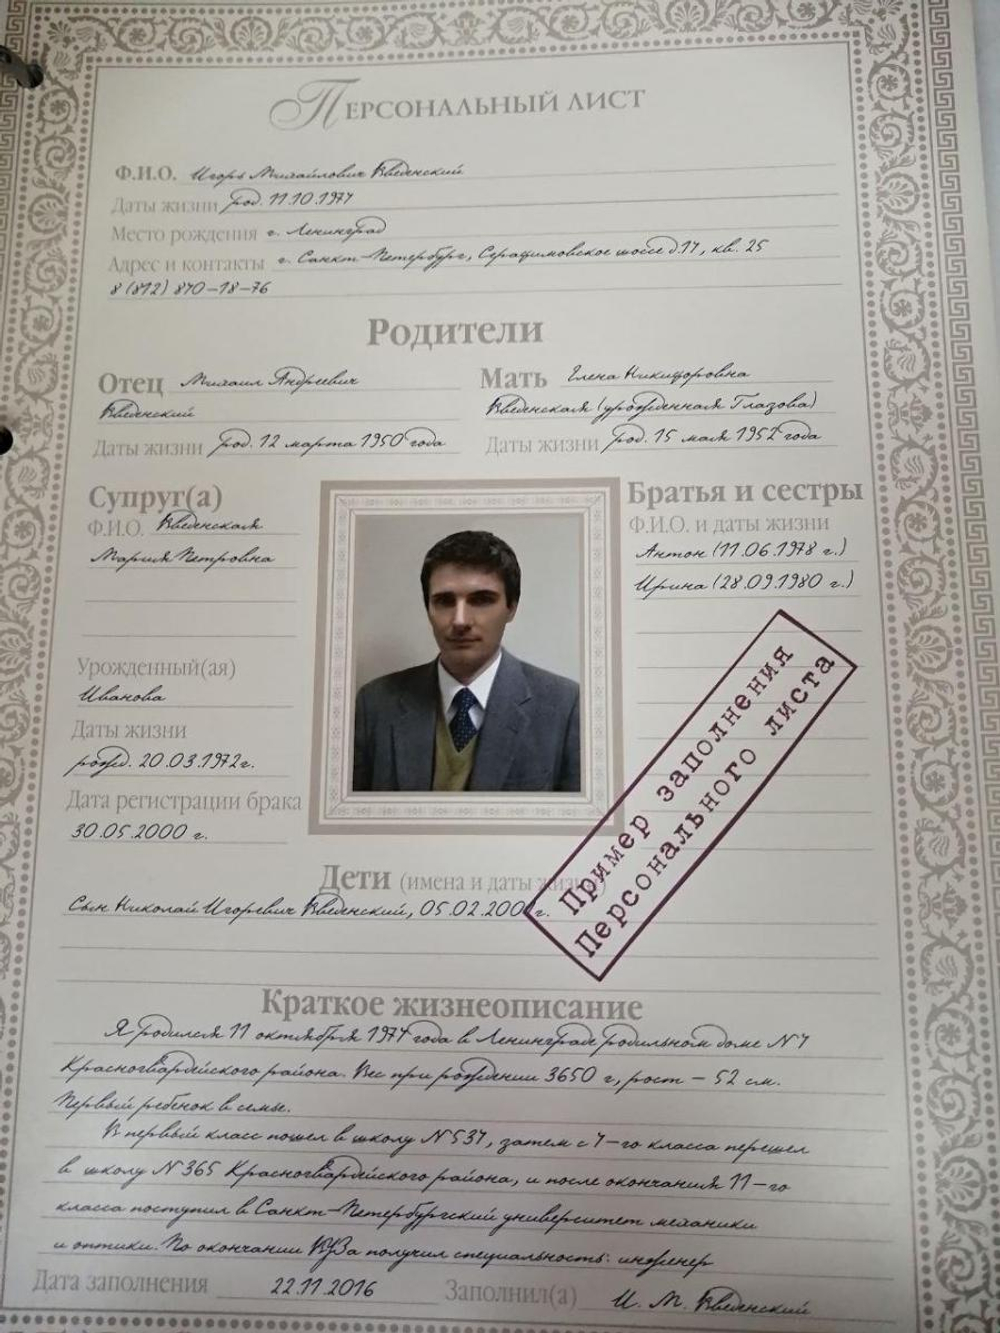 Персональный лист
Ф.И.О. Игорь Михайлович Введенский
Даты жизни род. 11.10.1974
Место рождения г. Ленинград
Адрес и контакты г. Санкт-Петербург, Серафимовское шоссе д.17, кв. 25
8 (812) 870-18-76
Родители
Отец Михаил Андреевич
Введенский
Даты жизни род. 12 марта 1950 года
Мать Елена Никифоровна
Введенская (урожденная Глазова)
Даты жизни род. 15 мая 1952 года
Супруг(а)
Ф.И.О. Введенская
Мария Петровна
Урожденный(ая)
Иванова
Даты жизни
рожд. 20.03.1972г.
Дата регистрации брака
30.05.2000 г.
Братья и сестры
Ф.И.О. и даты жизни
Антон (11.06.1978 г.)
Ирина (28.09.1980 г.)
Пример заполнения
Персонального листа
Дети (имена и даты жизни)
Сын Николай Игоревич Введенский, 05.02.200 г.
Краткое жизнеописание
Я родился 11 октября 1974 года в Ленинграде родильном доме №
Красногвардейского района. Вес при рождении 3650 г, рост – 52 см.
Первый ребенок в семье.
В первый класс пошел в школу № затем с класса перешел
в школу №365 Красногвардейского района, и после окончания 11-го
класса поступил в Санкт-Петербургский университет механики
и оптики. По окончании ВУЗа получил специальность: инженер
Дата заполнения 22.11.2016 Заполнил(а) И. М. Введенский